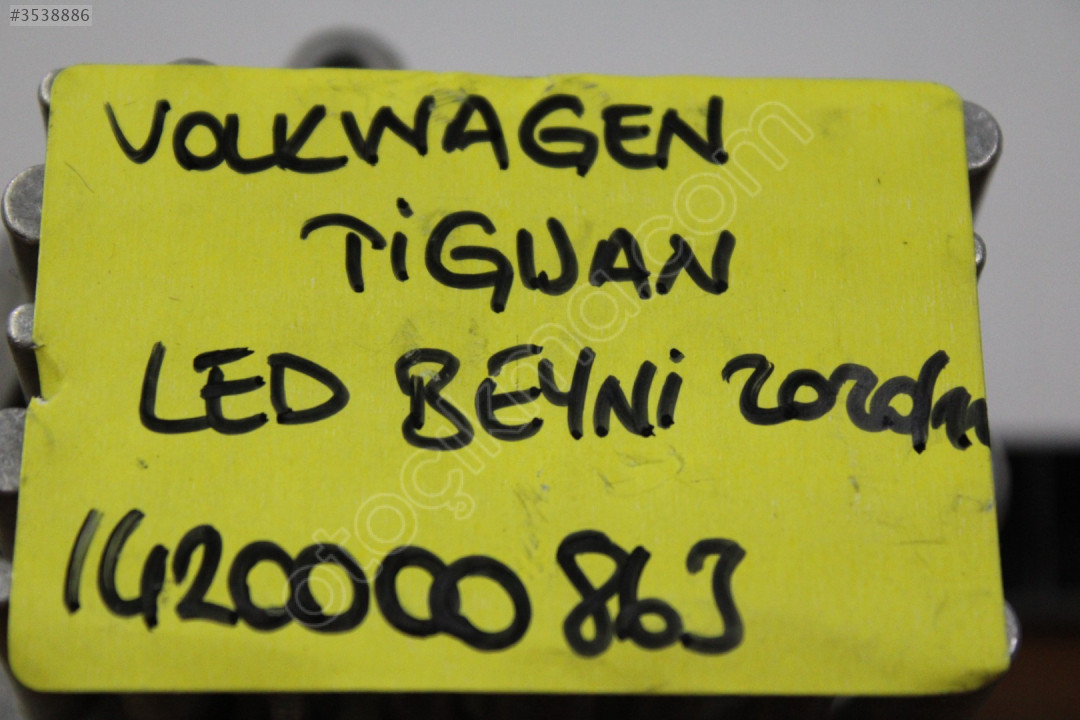 #3538886
VOLKWAGEN
TiGUAN
LED BEYNi
1420000863
otoçıkma.com